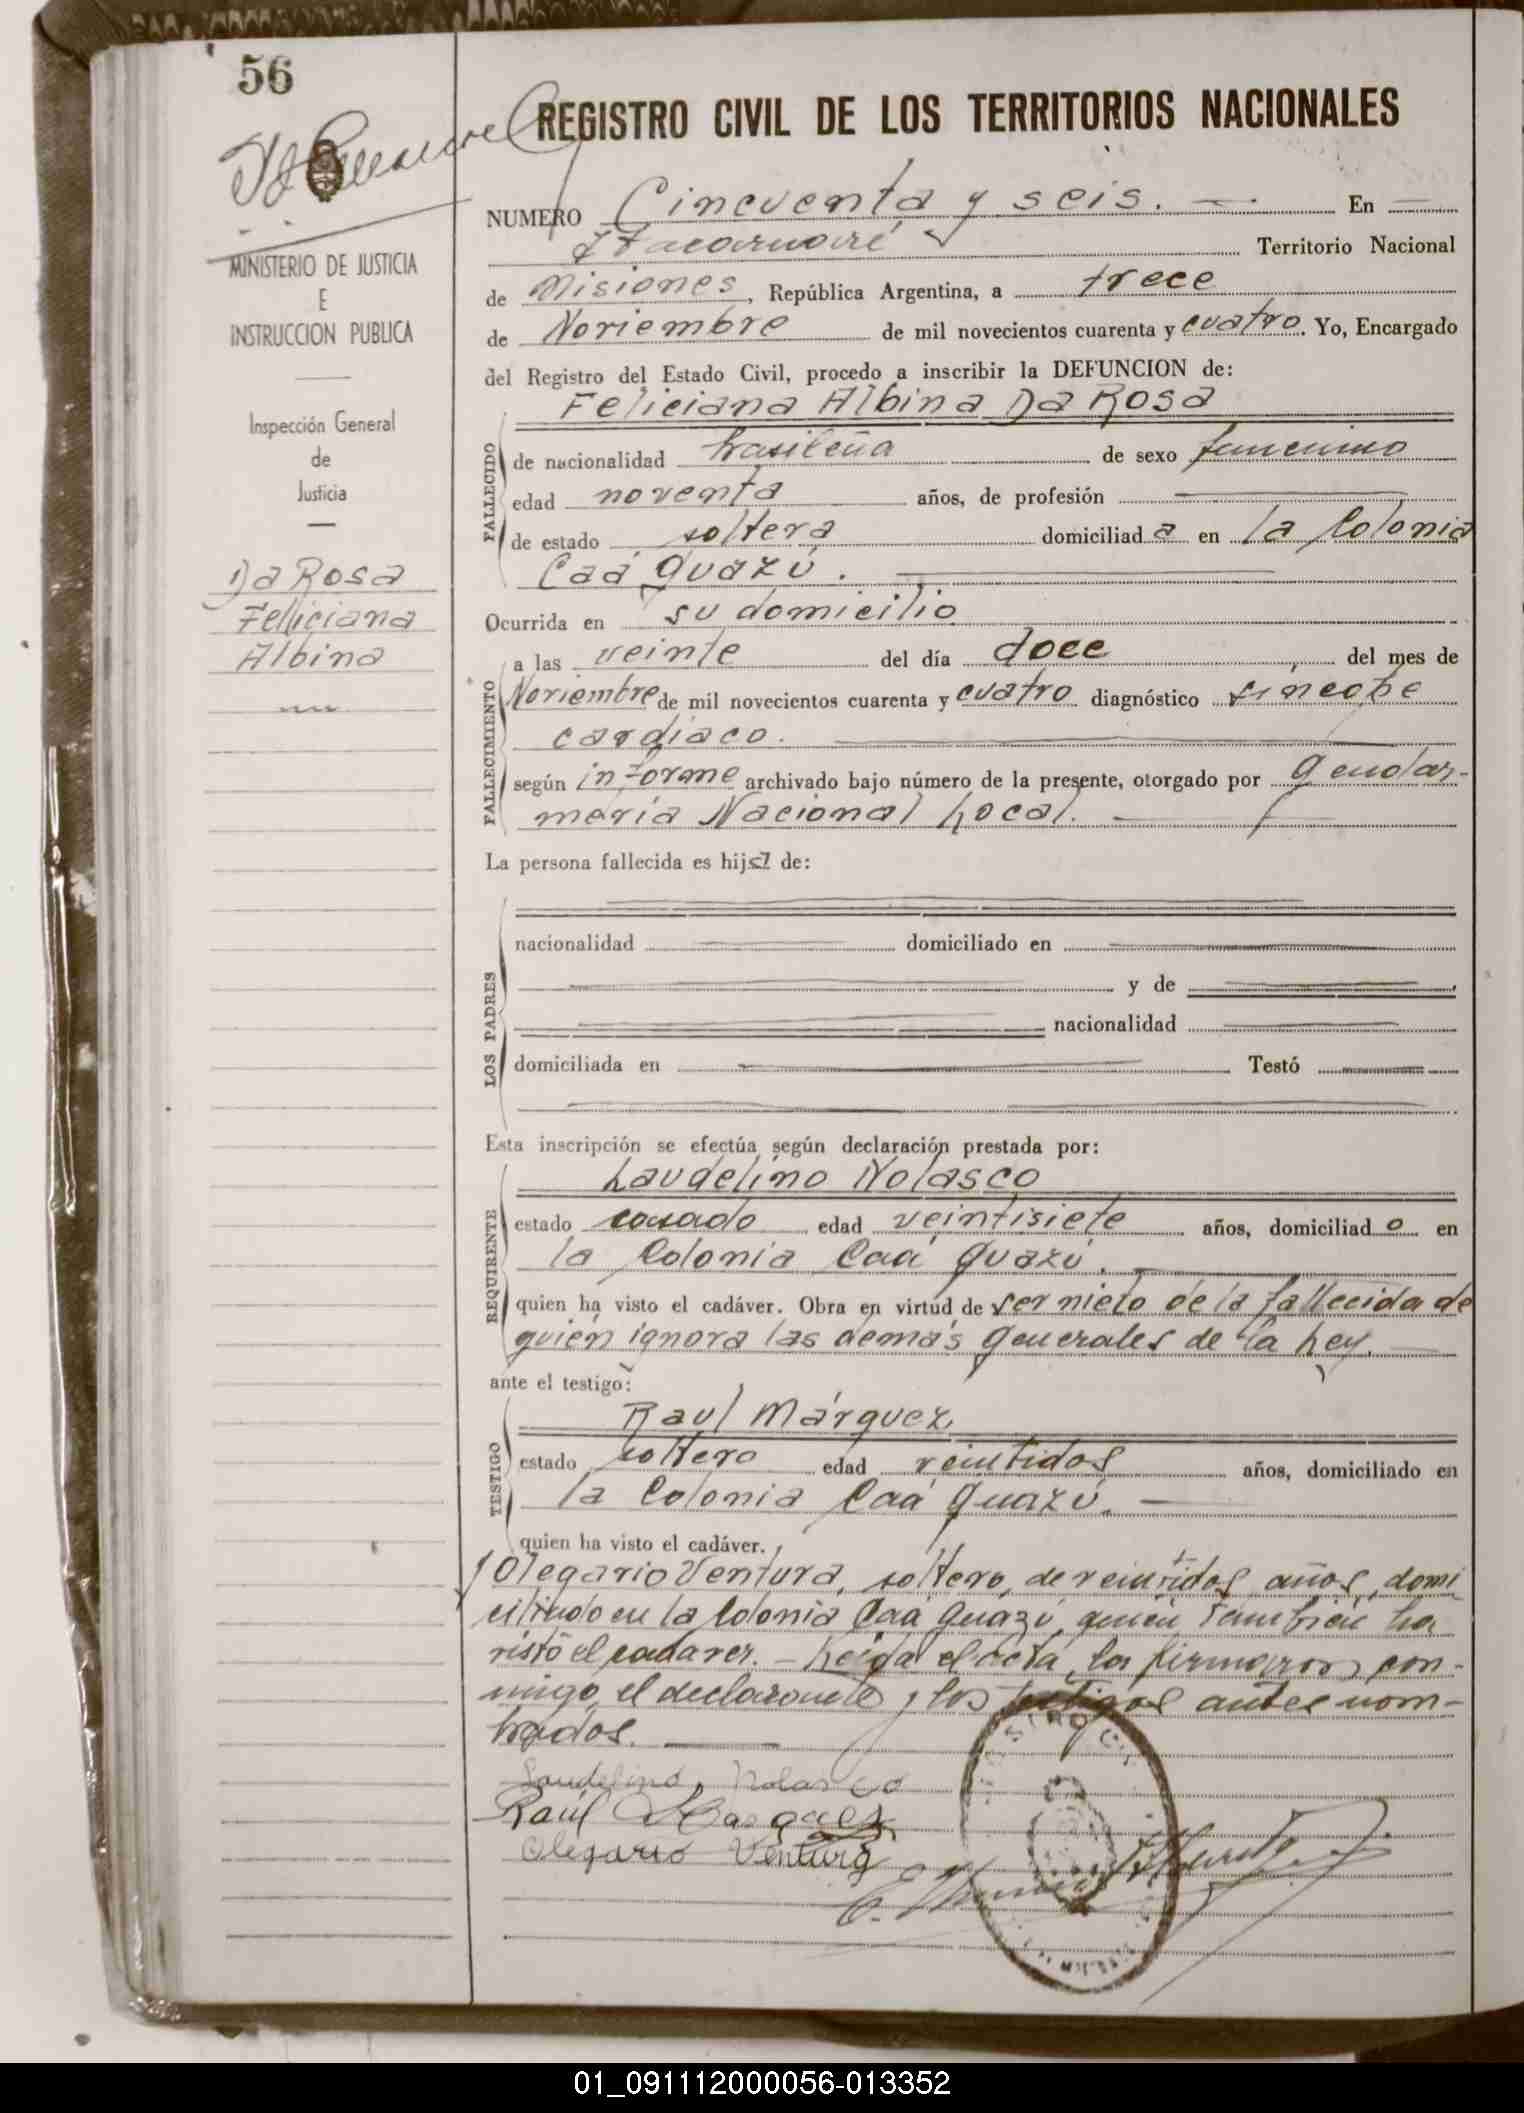 56
REGISTRO CIVIL DE LOS TERRITORIOS NACIONALES
NUMERO Cincuenta y seis. — En —
Itacaruaré Territorio Nacional
de Misiones, República Argentina, a trece
de Noviembre de mil novecientos cuarenta y cuatro. Yo, Encargado
del Registro del Estado Civil, procedo a inscribir la DEFUNCION de:
Feliciana Albina Da Rosa
MINISTERIO DE JUSTICIA
E
INSTRUCCION PUBLICA
Inspección General
de
Justicia
Da Rosa
Feliciana
Albina
FALLECIDO
de nacionalidad brasileña de sexo femenino
edad noventa años, de profesión —
de estado soltera domiciliad a en la Colonia
Caá Guazú. —
Ocurrida en su domicilio
FALLECIMIENTO
a las veinte del día doce del mes de
Noviembre de mil novecientos cuarenta y cuatro diagnóstico síncope
cardíaco. —
según informe archivado bajo número de la presente, otorgado por Gendar-
mería Nacional Local. —
La persona fallecida es hija de:
LOS PADRES
nacionalidad — domiciliado en —
— y de —
— nacionalidad —
domiciliada en — Testó —
Esta inscripción se efectúa según declaración prestada por:
REQUIRENTE
Laudelino Nolasco
estado casado edad veintisiete años, domiciliad o en
la Colonia Caá Guazú. —
quien ha visto el cadáver. Obra en virtud de ser nieto de la fallecida de
quién ignora las demás generales de la Ley. —
ante el testigo:
TESTIGO
Raul Márquez
estado soltero edad veintidos años, domiciliado en
la Colonia Caá Guazú. —
quien ha visto el cadáver.
y Olegario Ventura, soltero, de veintidos años, domi
ciliado en la Colonia Caá Guazú, quien también ha
visto el cadaver. — Leída el acta, la firmaron con-
migo, el declarante y los testigos antes nom-
brados. —
Laudelino Nolasco
Raúl Marquez
Olegario Ventura
01_091112000056-013352